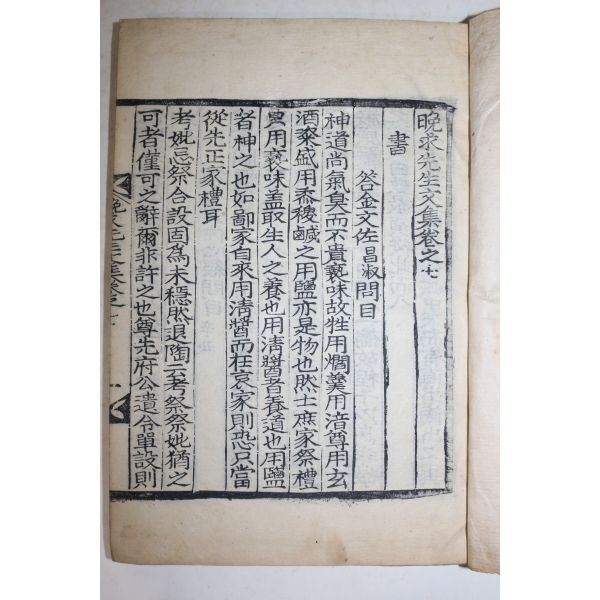 晩求先生文集卷之七
書
答金文佐昌淑問目
神道尚氣臭而不貴褻味故牲用爓羹用湆尊用玄
酒粢盛用黍稷鹹之用鹽亦是物也然士庶家祭禮
用褻味盖取生人之養也用淸醬者養道也用鹽
者神之也如鄙家自來用淸醬而在哀家則恐只當
從先正家禮耳
考妣忌祭合設固爲未穩然退陶云考祭祭妣猶之
可者僅可之辭爾非許之也尊先府公遺令單設則
晩求先生文集卷之七 一